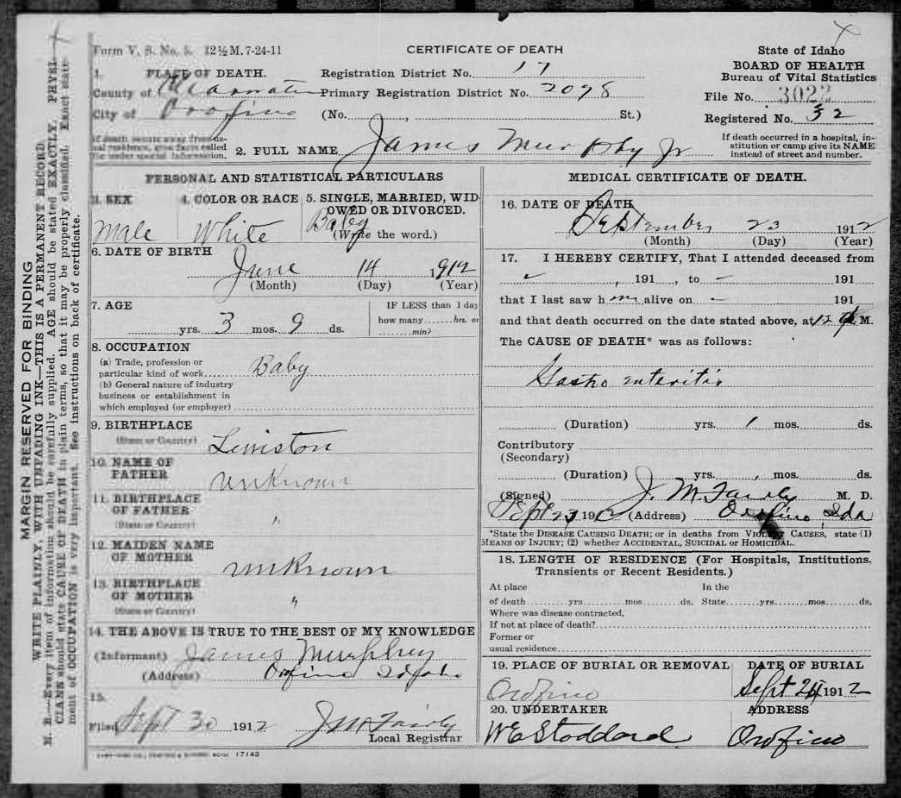 Form V. S. No. 5. 12½M. 7-24-11
CERTIFICATE OF DEATH
State of Idaho
BOARD OF HEALTH
Bureau of Vital Statistics
File No. 3022
Registered No. 32
If death occurred in a hospital, in-
stitution or camp give its NAME
instead of street and number.
1. PLACE OF DEATH.
County of
City of Orofino
If death occurs away from us-
ual residence, give facts called
for under special information.
Registration District No. 17
Primary Registration District No. 2098
(No. , St.)
2. FULL NAME James Murphy Jr
PERSONAL AND STATISTICAL PARTICULARS
3. SEX
Male
4. COLOR OR RACE
White
5. SINGLE, MARRIED, WID-
OWED OR DIVORCED.
Baby
(Write the word.)
6. DATE OF BIRTH
June 14 1912
(Month) (Day) (Year)
7. AGE
yrs. 3 mos. 9 ds.
IF LESS than 1 day
how many hrs. or
min?
8. OCCUPATION
(a) Trade, profession or
particular kind of work Baby
(b) General nature of industry
business or establishment in
which employed (or employer)
9. BIRTHPLACE
(State or Country) Lewiston
10. NAME OF
FATHER unknown
11. BIRTHPLACE
OF FATHER
(State or Country) "
12. MAIDEN NAME
OF MOTHER unknown
13. BIRTHPLACE
OF MOTHER
(State or Country) "
14. THE ABOVE IS TRUE TO THE BEST OF MY KNOWLEDGE
(Informant) James Murphey
(Address) Orofino Idaho
15.
Filed Sept 30 1912 J M Fairly
Local Registrar
17143
MEDICAL CERTIFICATE OF DEATH.
16. DATE OF DEATH
September 23 1912
(Month) (Day) (Year)
17. I HEREBY CERTIFY, That I attended deceased from
, 191 , to – 191
that I last saw him alive on – 191
and that death occurred on the date stated above, at 12 M.
The CAUSE OF DEATH* was as follows:
Gastro enteritis
(Duration) yrs. 1 mos. ds.
Contributory
(Secondary)
(Duration) yrs. mos. ds.
(Signed) J. M. Fairly M. D.
Sept 23 191 (Address) Orofino, Ida
*State the DISEASE CAUSING DEATH; or in deaths from VIOLENT CAUSES, state (1)
MEANS OF INJURY; (2) whether ACCIDENTAL, SUICIDAL or HOMICIDAL.
18. LENGTH OF RESIDENCE (For Hospitals, Institutions,
Transients or Recent Residents.)
At place In the
of death yrs. mos. ds. State yrs. mos. ds.
Where was disease contracted,
If not at place of death?
Former or
usual residence
19. PLACE OF BURIAL OR REMOVAL
Orofino
DATE OF BURIAL
Sept 24 1912
20. UNDERTAKER
WE Stoddard
ADDRESS
Orofino
MARGIN RESERVED FOR BINDING
WRITE PLAINLY, WITH UNFADING INK—THIS IS A PERMANENT RECORD
N. B.—Every item of information should be carefully supplied. AGE should be stated EXACTLY. PHYSI-
CIANS should state CAUSE OF DEATH in plain terms, so that it may be properly classified. Exact state-
ment of OCCUPATION is very important. See instructions on back of certificate.